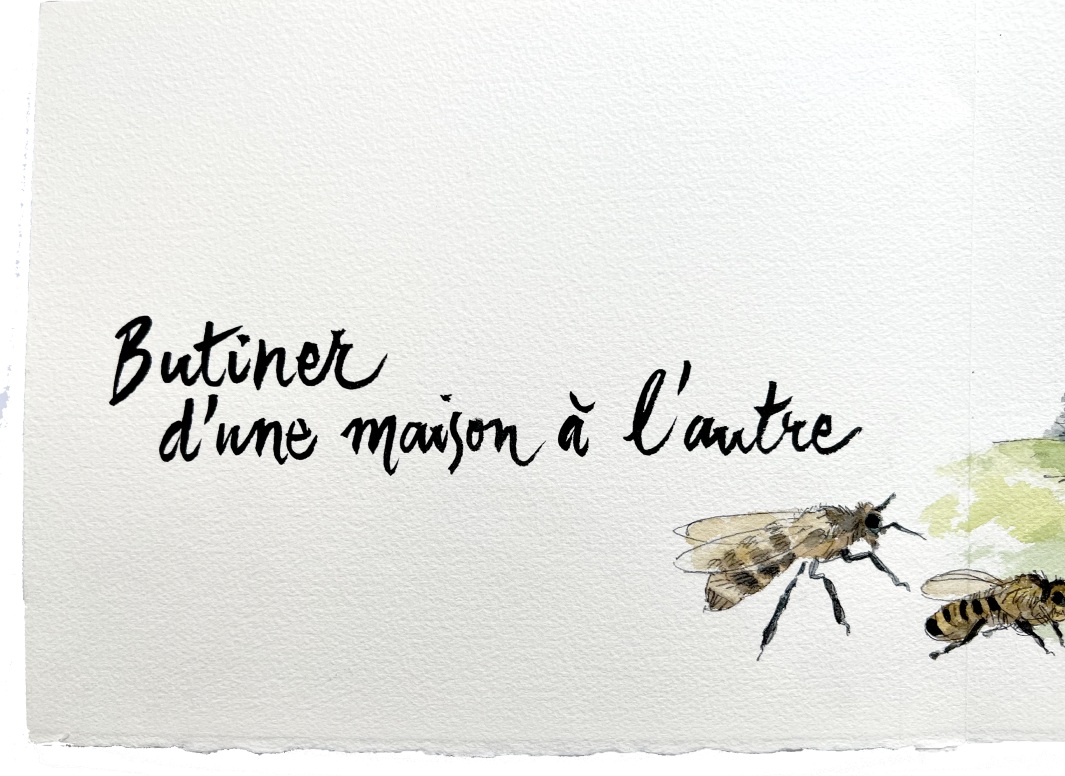 Butiner
d'une maison à l'autre